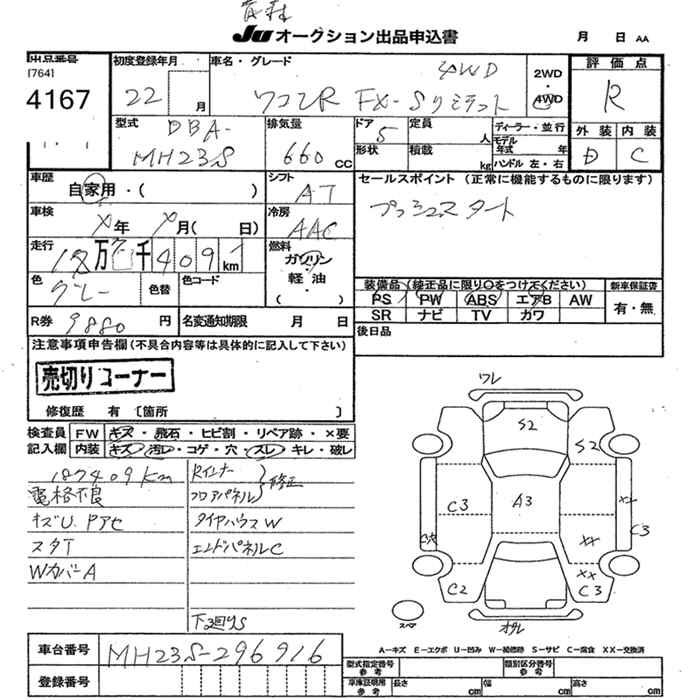 青森
JU オークション出品申込書
月 日 AA
出品番号
[764]
4167
初度登録年月
22 月
車名・グレード
ワゴンR FX-Sリミテッド 4WD
2WD
・
4WD
評価点
R
外装 内装
D C
型式
DBA-
MH23S
排気量
660 CC
ドア
5
形状
定員 人
積載 kg
ディーラー・並行
モデル年式 年
ハンドル 左・右
車歴
自家用・( )
シフト
AT
車検
年 月( 日)
冷房
AAC
セールスポイント (正常に機能するものに限ります)
プッシュスタート
走行
万 千 409 km
燃料
ガソリン
・
軽油
( )
色
グレー
色替
色コード
装備品(純正品に限り〇をつけてください)
PS PW ABS エアB AW
SR ナビ TV カワ
新車保証書
有・無
R券 9880 円
名変通知期限 月 日
後日品
注意事項申告欄 (不具合内容等は具体的に記入して下さい)
売切りコーナー
修復歴 有 [箇所 ]
検査員
記入欄
FW キズ・飛石・ヒビ割・リペア跡・×要
内装 キズ・汚レ・コゲ・穴・スレ・キレ・破レ
187409Km
電格不良
キズU. Pアセ
スタT
WカバーA
Rインナー
フロアパネル
修正
タイヤハウスW
エンドパネルC
下廻りS
ワレ
S2
S2
C3
A3
XX
C3
C2
XX
C3
スペア
A-キズ E-エクボ U-凹み W-補修跡 S-サビ C-腐食 XX-交換済
車台番号
MH23S-296916
登録番号
型式指定番号
参考
類別区分番号
車庫証明用
参考
長さ cm 幅 cm 高さ cm